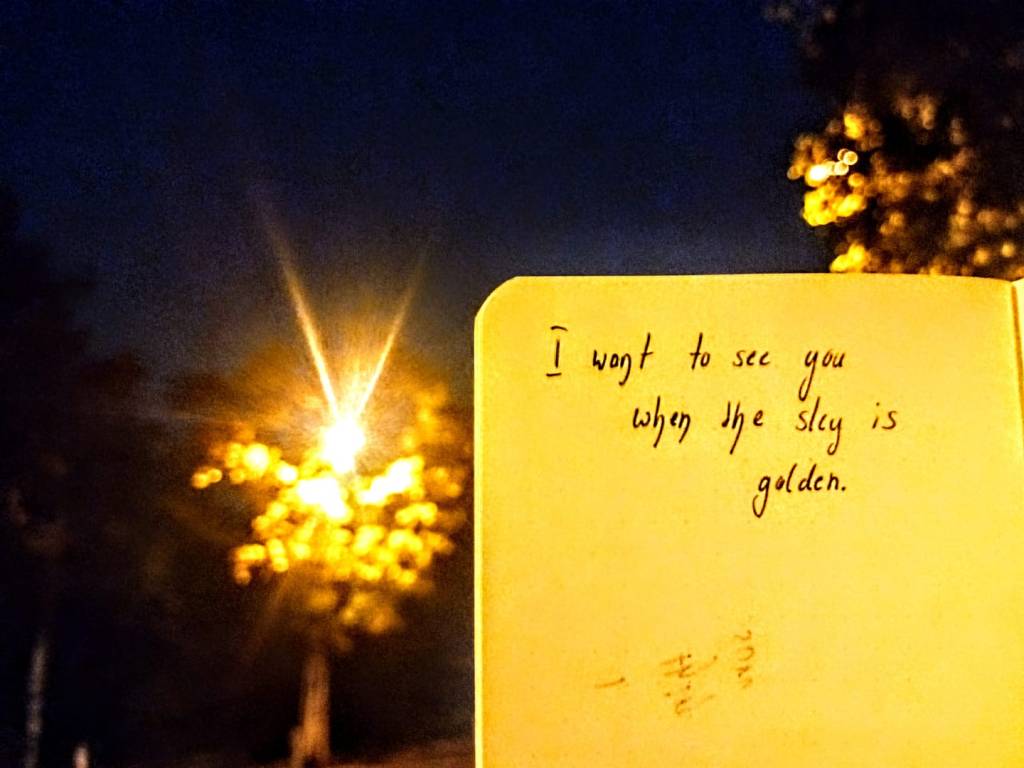 I want to see you
when the sky is
golden.